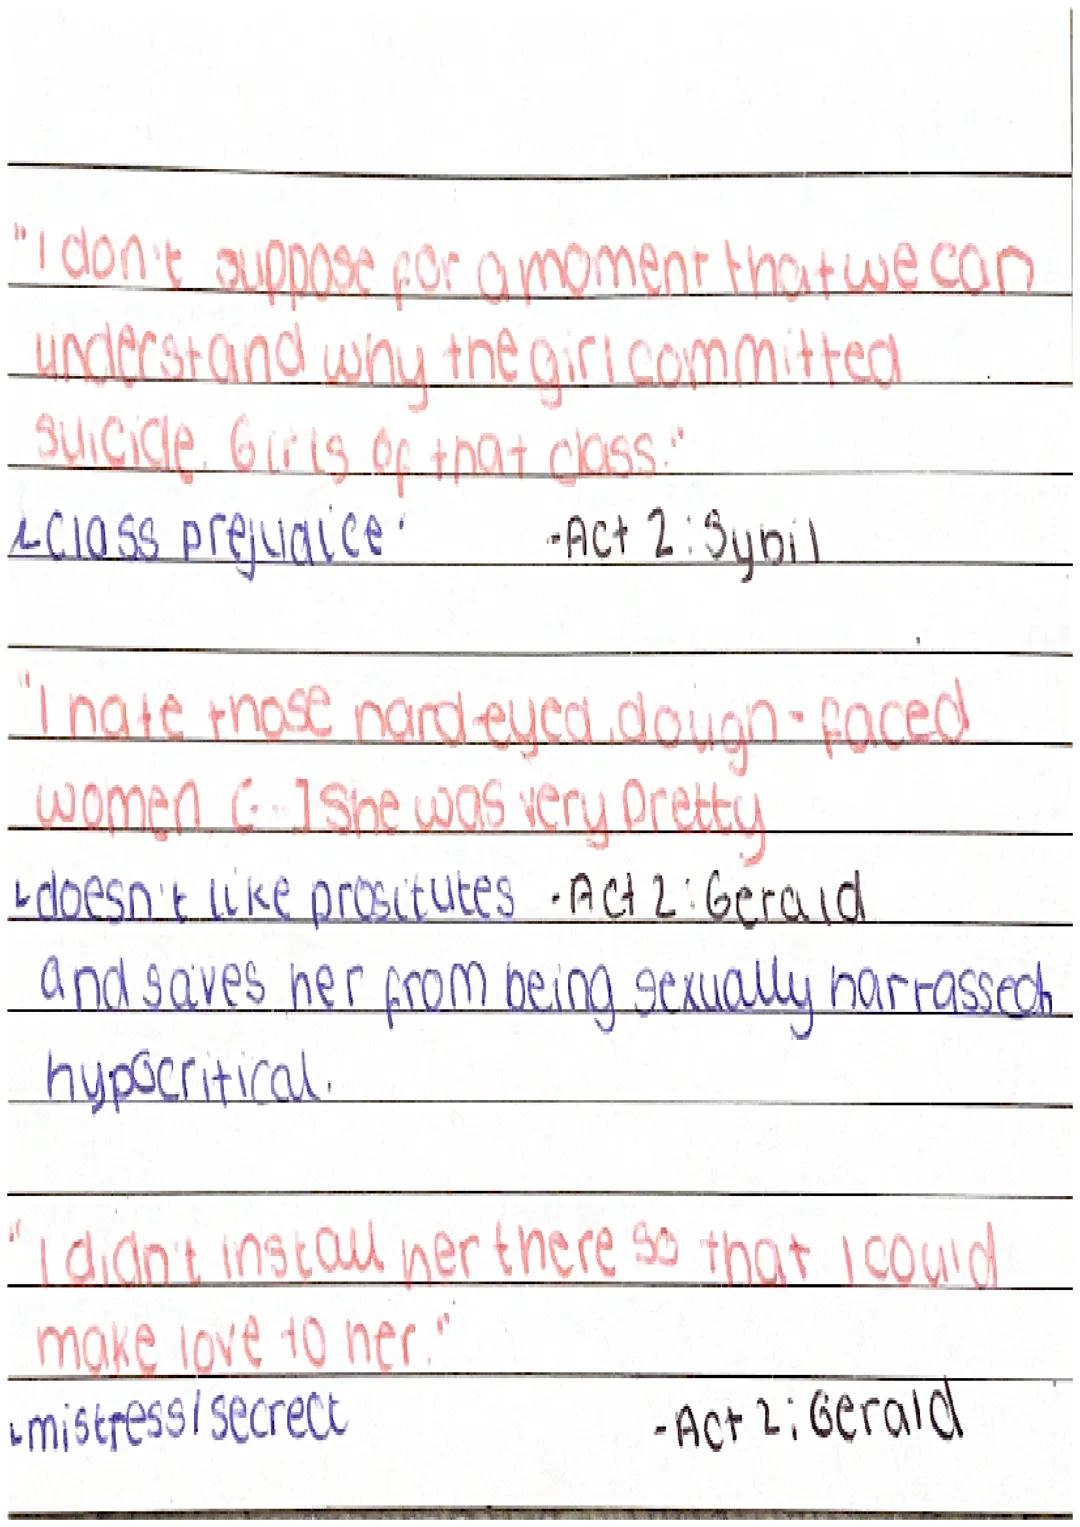 "I don't suppose for a moment that we can
understand why the girl committed
suicide. Girls of that class."
↳class prejudice. -Act 2: Sybil
"I hate those hard-eyed, dough-faced
women [...] She was very pretty
↳doesn't like prositutes -Act 2: Gerald
and saves her from being sexually harrassed
hypocritical.
"I didn't install her there so that I could
make love to her."
↳mistress/secrect -Act 2: Gerald